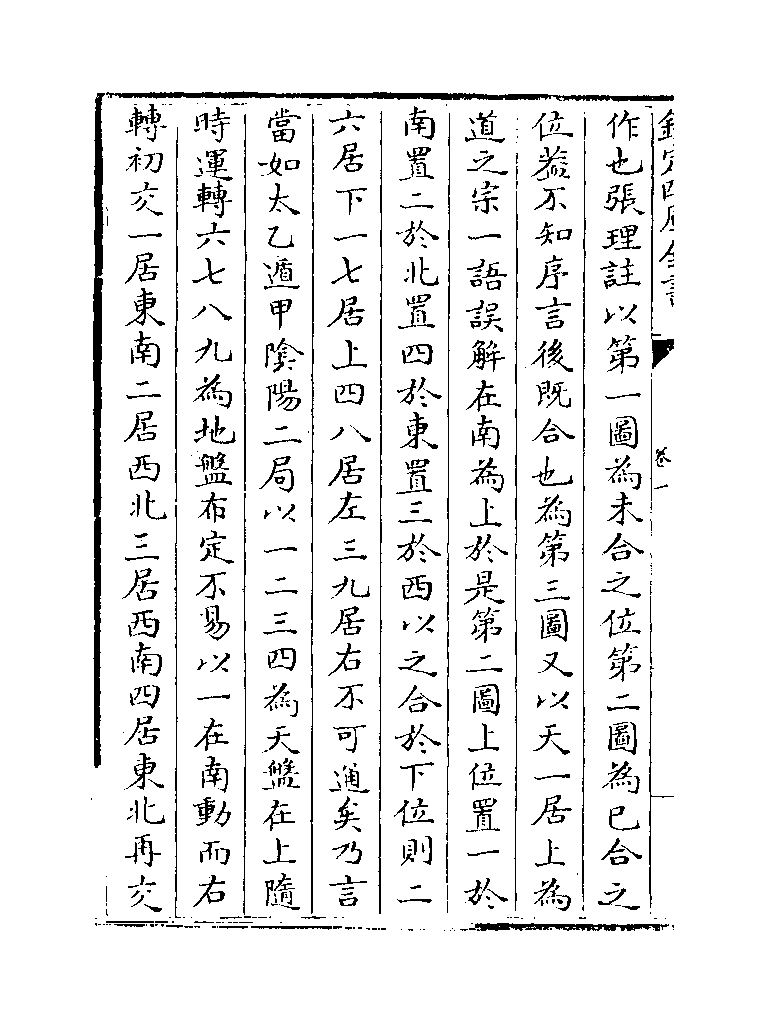 欽定四庫全書
卷一
作也張理註以第一圖為未合之位第二圖為已合之
位葢不知序言後既合也為第三圖又以天一居上為
道之宗一語誤解在南為上於是第二圖上位置一於
南置二於北置四於東置三於西以之合於下位則二
六居下一七居上四八居左三九居右不可通矣乃言
當如太乙遁甲隂陽二局以一二三四為天盤在上隨
時運轉六七八九為地盤布定不易以一在南動而右
轉初交一居東南二居西北三居西南四居東北再交